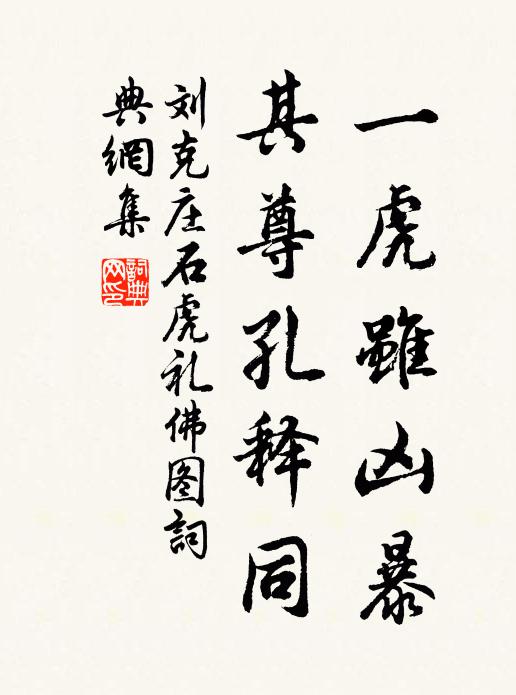 一虎雖凶暴
其尊孔释同
刘克庄石虎礼佛图詞
典網集
詞典
网印